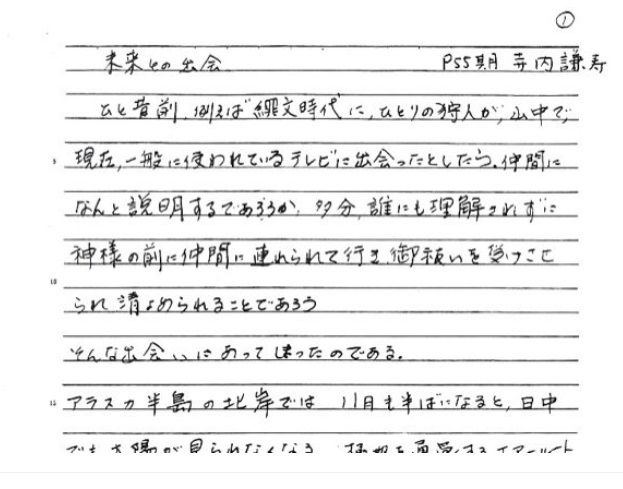 ①
未来との出会　　P55期 寺内謙寿
ひと昔前、例えば"縄文時代"に、ひとりの狩人が、山中で、
5 現在、一般に使われているテレビに出会ったとしたら。仲間に
なんと説明するであろうか、多分、誰にも理解されずに
神様の前に仲間に連れられて行き、御祓いを受けさせ
10 られ清よめられることであろう
そんな出会いにあってしまったのである。
15 アラスカ半島の北岸では 11月も半ばになると、日中
でも太陽が見られなくなる